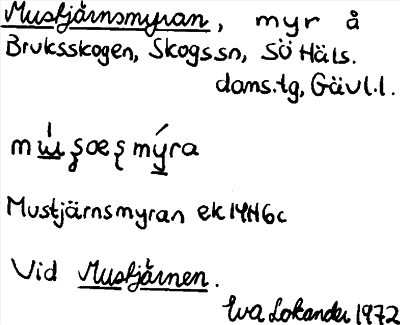 Mustjärnsmyran, myr å
Bruksskogen, Skogssn, SÖ Häls.
doms.tg, Gävl.l.
Mustjärnsmyran ek 14H6c
Vid Mustjärnen.
Eva Lokander 1972